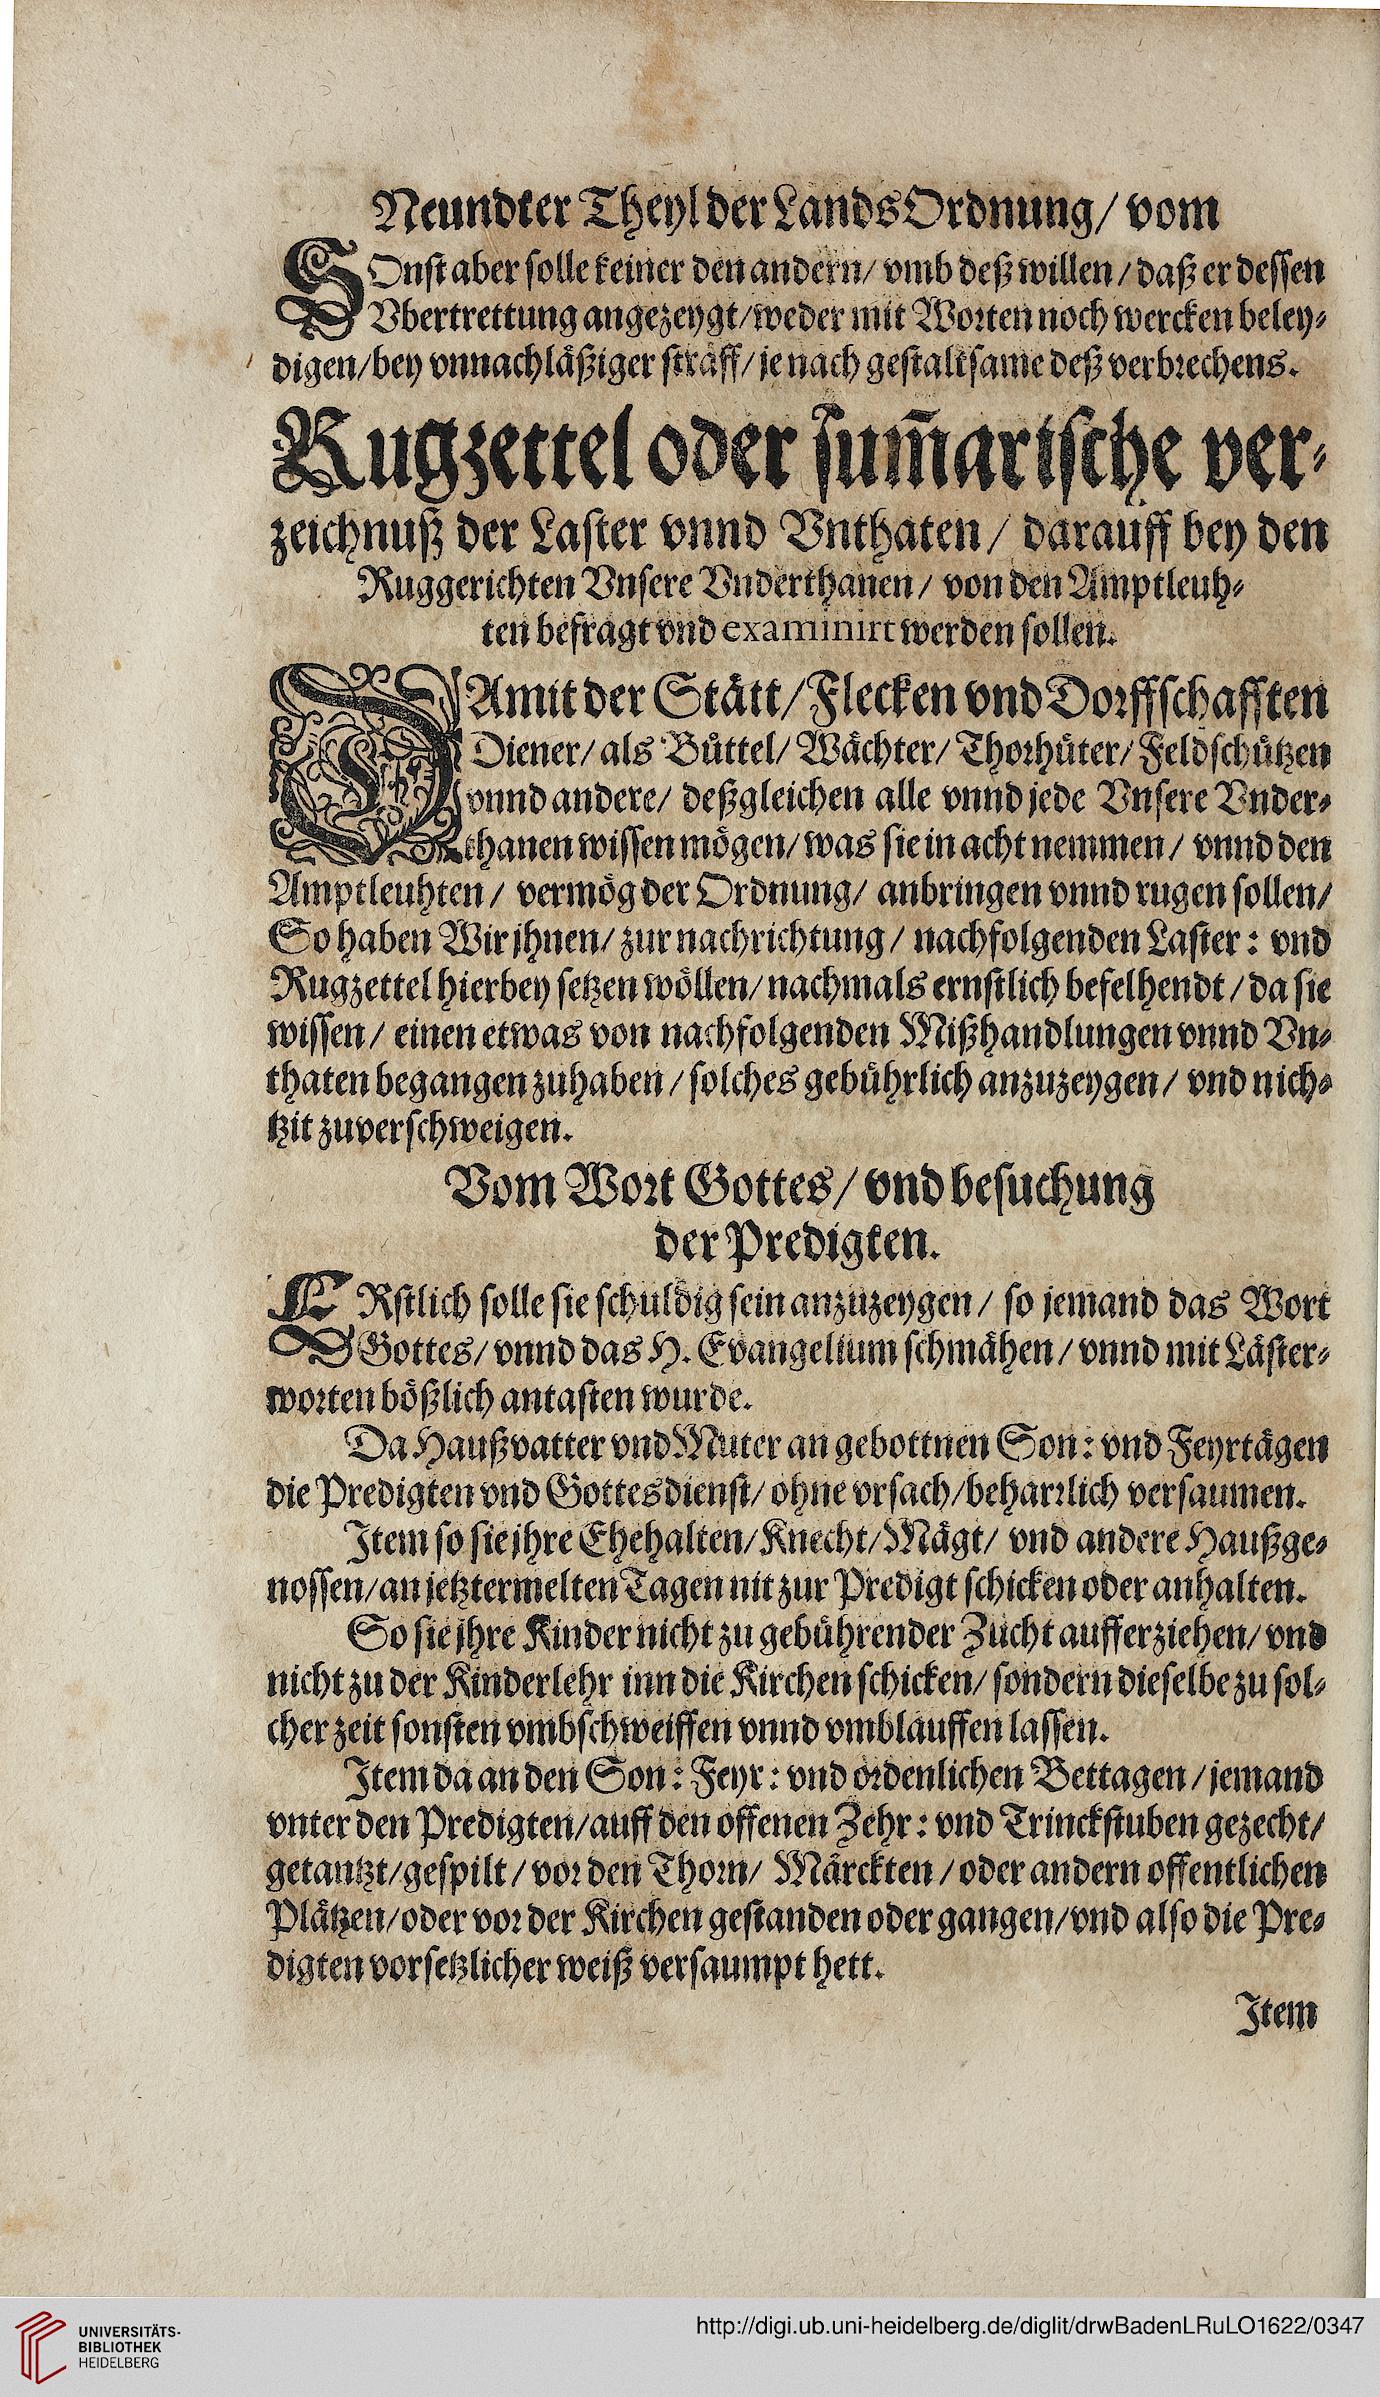 Neundter Theyl der LandsOrdnung/ vom
SOnst aber solle keiner den andern/ vmb deß willen/ daß er dessen
Vbertrettung angezeygt/ weder mit Worten noch wercken beley-
digen/ bey vnnachläßiger straff/ je nach gestaltsame deß verbrechens.
Rugzettel oder sum̄arische ver-
zeichnuß der Laster vnnd Vnthaten/ darauff bey den
Ruggerichten Vnsere Vnderthanen/ von den Amptleuh-
ten befragt vnd examinirt werden sollen.
DAmit der Stätt/ Flecken vnd Dorffschafften
Diener/ als Büttel/ Wächter/ Thorhüter/ Feldschützen
vnnd andere/ deßgleichen alle vnnd jede Vnsere Vnder-
thanen wissen mögen/ was sie in acht nemmen/ vnnd den
Amptleuhten/ vermög der Ordnung/ anbringen vnnd rugen sollen/
So haben Wir jhnen/ zur nachrichtung/ nachfolgenden Laster: vnd
Rugzettel hierbey setzen wöllen/ nachmals ernstlich befelhendt/ da sie
wissen/ einen etwas von nachfolgenden Mißhandlungen vnnd Vn-
thaten begangen zuhaben/ solches gebührlich anzuzeygen/ vnd nich-
tzit zuverschweigen.
Vom Wort Gottes/ vnd besuchung
der Predigten.
ERstlich solle sie schuldig sein anzuzeygen/ so jemand das Wort
Gottes/ vnnd das H. Evangelium schmähen/ vnnd mit Läster-
worten bößlich antasten wurde.
Da Haußvatter vnd Muter an gebottnen Son: vnd Feyrtägen
die Predigten vnd Gottesdienst/ ohne vrsach/ beharrlich versaumen.
Item so sie jhre Ehehalten/ Knecht/ Mägt/ vnd andere Haußge-
nossen/ an jetztermelten Tagen nit zur Predigt schicken oder anhalten.
So sie jhre Kinder nicht zu gebührender Zucht aufferziehen/ vnd
nicht zu der Kinderlehr inn die Kirchen schicken/ sondern dieselbe zu sol-
cher zeit sonsten vmbschweiffen vnnd vmblauffen lassen.
Item da an den Son: Feyr: vnd ordenlichen Bettagen/ jemand
vnter den Predigten/ auff den offenen Zehr: vnd Trinckstuben gezecht/
getantzt/ gespilt/ vor den Thorn/ Märckten/ oder andern offentlichen
Plätzen/ oder vor der Kirchen gestanden oder gangen/ vnd also die Pre-
digten vorsetzlicher weiß versaumpt hett.
Item
UNIVERSITÄTS-
BIBLIOTHEK
HEIDELBERG
http://digi.ub.uni-heidelberg.de/diglit/drwBadenLRuLO1622/0347